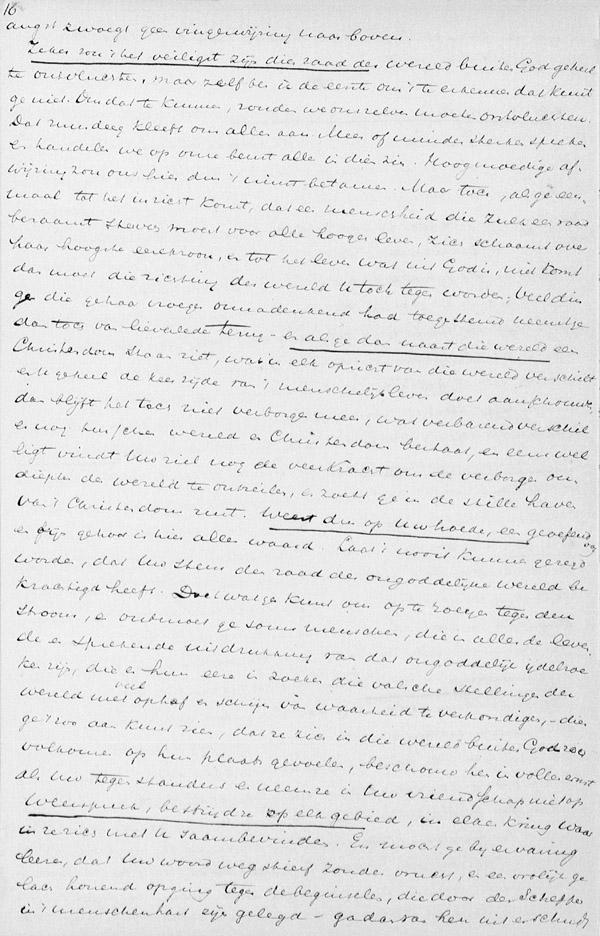 16
angst zwoegt geen vingerwijzing naar boven.
Zeker zou 't het veiligst zijn dien raad der wereld buiten God geheel
te ontvluchten, maar zelf ben ik de eerste om 't te erkennen dat kunt
ge niet. Om dat te kunnen, zouden we onszelven moeten ontvluchten.
Dat zondige kleeft ons allen aan. Meer of minder sterker spreken
en handelen we op onze beurt allen in dien zin. Hoogmoedige af-
wijzing zou ons hier dus 't minst betamen. Maar toch, als ge een-
maal tot het inzicht komt, dat een menschheid die zulk een raad
beraamt sterven moest voor alle hooger leven, zich schaamt over
haar hoogste eerekroon, en tot het leven wat uit God is, niet komt
dan moet die richting der wereld U toch tegen worden. Veel din
gen die ge haar vroeger onnadenkend had toegestemd neemt ge
dan toch van lieverlede terug - en als ge dan naast die wereld een
Christendom staan ziet, wat in elk opzicht van die wereld verschilt
en U geheel de keerzijde van 't menschelijk leven doet aanschouwen
dan blijft het toch niet verborgen meer, wat verbazend verschil
er nog tusschen wereld en Christendom bestaat, en eens wel
ligt vindt Uw ziel nog de veerkracht om de verborgen on
diepten der wereld te ontzeilen, en zoekt ge in de stille haven
van 't Christendom rust. Weest dus op Uw hoede, een geoefend oog
en fijn gehoor is hier alles waard. Laat 't nooit kunnen gezegd
worden, dat Uw stem den raad der ongoddelijke wereld be
krachtigd heeft. Doet wat ge kunt om op te roeien tegen den
stroom, en ontmoet ge soms menschen, die in alles de leven
de en sprekende uitdrukking van dat ongoddelijk ijdele
zijn, die er hun eere in zoeken die valsche stellingen der
wereld met veel ophef en schijn van waarheid te verkondigen, - dien
ge 't zoo aan kunt zien, dat ze zich in die wereld buiten God zoo
volkomen op hun plaats gevoelen, beschouw hen in vollen ernst
als Uw tegenstanders en neem ze in Uw vriendschap niet op
Weerspreek, bestrijdt ze op elk gebied, in elken kring waar
in ze zich met U saambevinden. En moest ge bij ervaring
leeren, dat Uw woord wegstierf zonder vrucht, en een vrolijk ge
lach honend opging tegen de beginselen, die door den Schepper
in 't menschenhart zijn gelegd - ga dan van hen uit en schudt